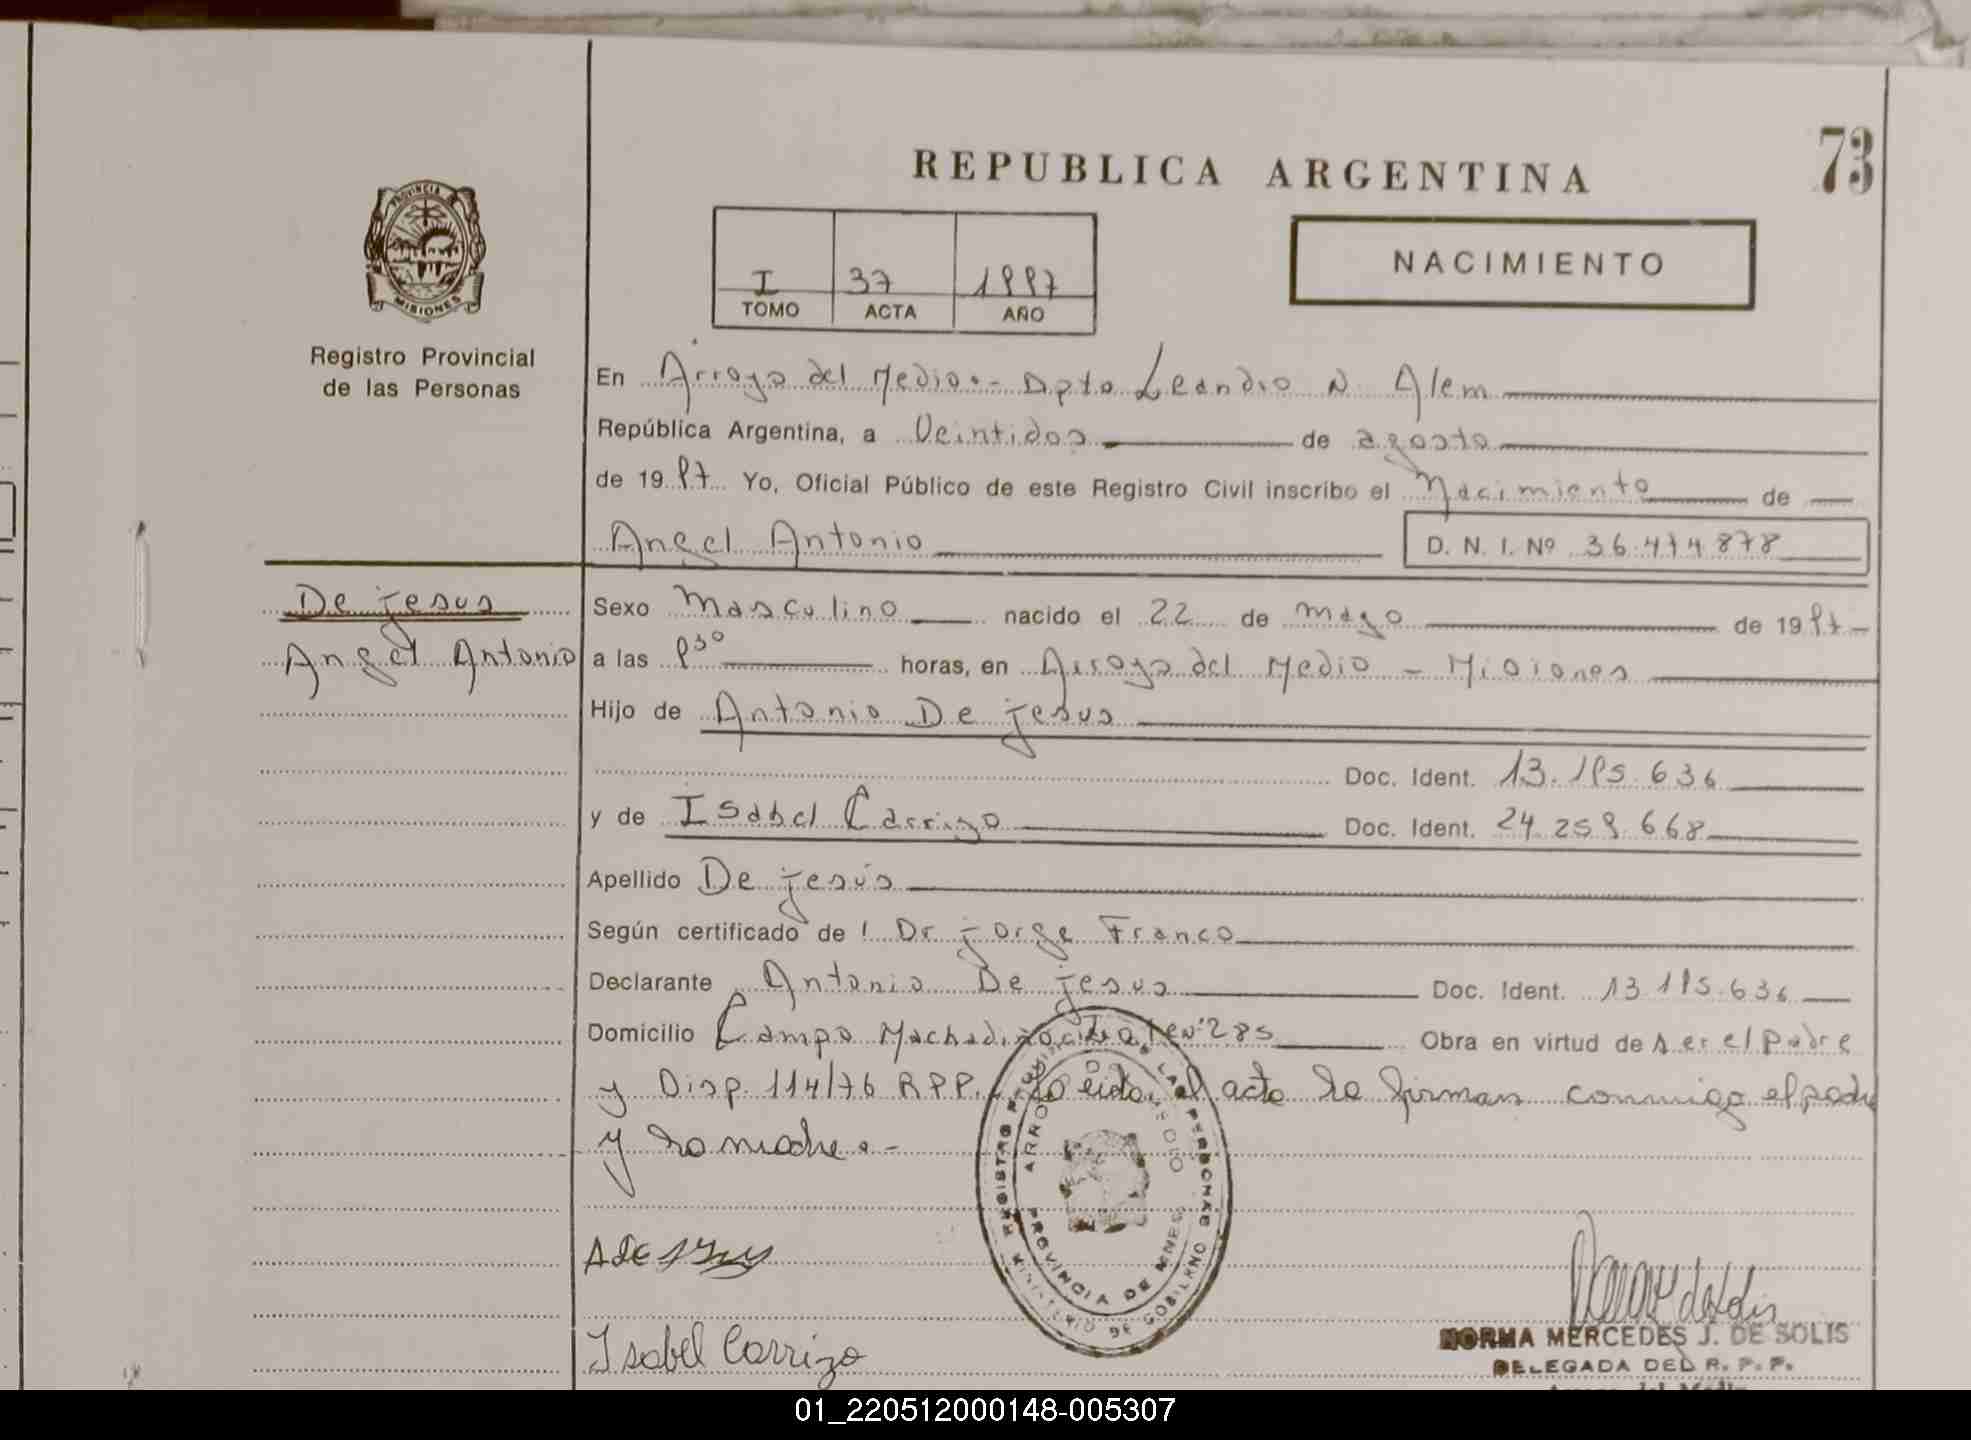 73
REPUBLICA ARGENTINA
PROVINCIA
MISIONES
Registro Provincial
de las Personas
I 37 1997
TOMO ACTA AÑO
NACIMIENTO
En Arroyo del Medio.- Dpto Leandro N. Alem
República Argentina, a Veintidos de agosto
de 1997 Yo, Oficial Público de este Registro Civil inscribo el Nacimiento de
Angel Antonio D. N. I. Nº 36.474878
De jesus
Angel Antonio
Sexo Masculino nacido el 22 de mayo de 1997
a las 9³⁰ horas, en Arroyo del Medio - Misiones
Hijo de Antonio De jesus
Doc. Ident. 13.195.636
y de Isabel Carrizo Doc. Ident. 24 259.668
Apellido De jesús
Según certificado de l Dr jorge Franco
Declarante Antonio De jesus Doc. Ident. 13 195.636
Domicilio Campo Machadinho 285 Obra en virtud de ser el padre
y Disp. 114/76 RPP. Leida el acta la firman conmigo el padre
y la madre.-
REGISTRO PROVINCIAL DE LAS PERSONAS
ARROYO DEL MEDIO
PROVINCIA DE MNES.
MINISTERIO DE GOBIERNO
Isabel Carrizo
NORMA MERCEDES J. DE SOLIS
DELEGADA DEL R. P. P.
Arroyo del Medio
01_220512000148-005307